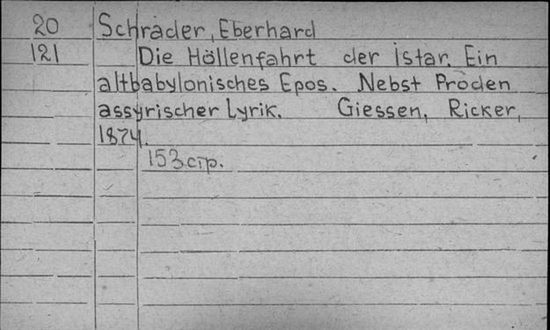 20 Schrader, Eberhard
121 Die Höllenfahrt der Istar. Ein
altbabylonisches Epos. Nebst Proden
assyrischer Lyrik. Giessen, Ricker,
1874.
153 стр.